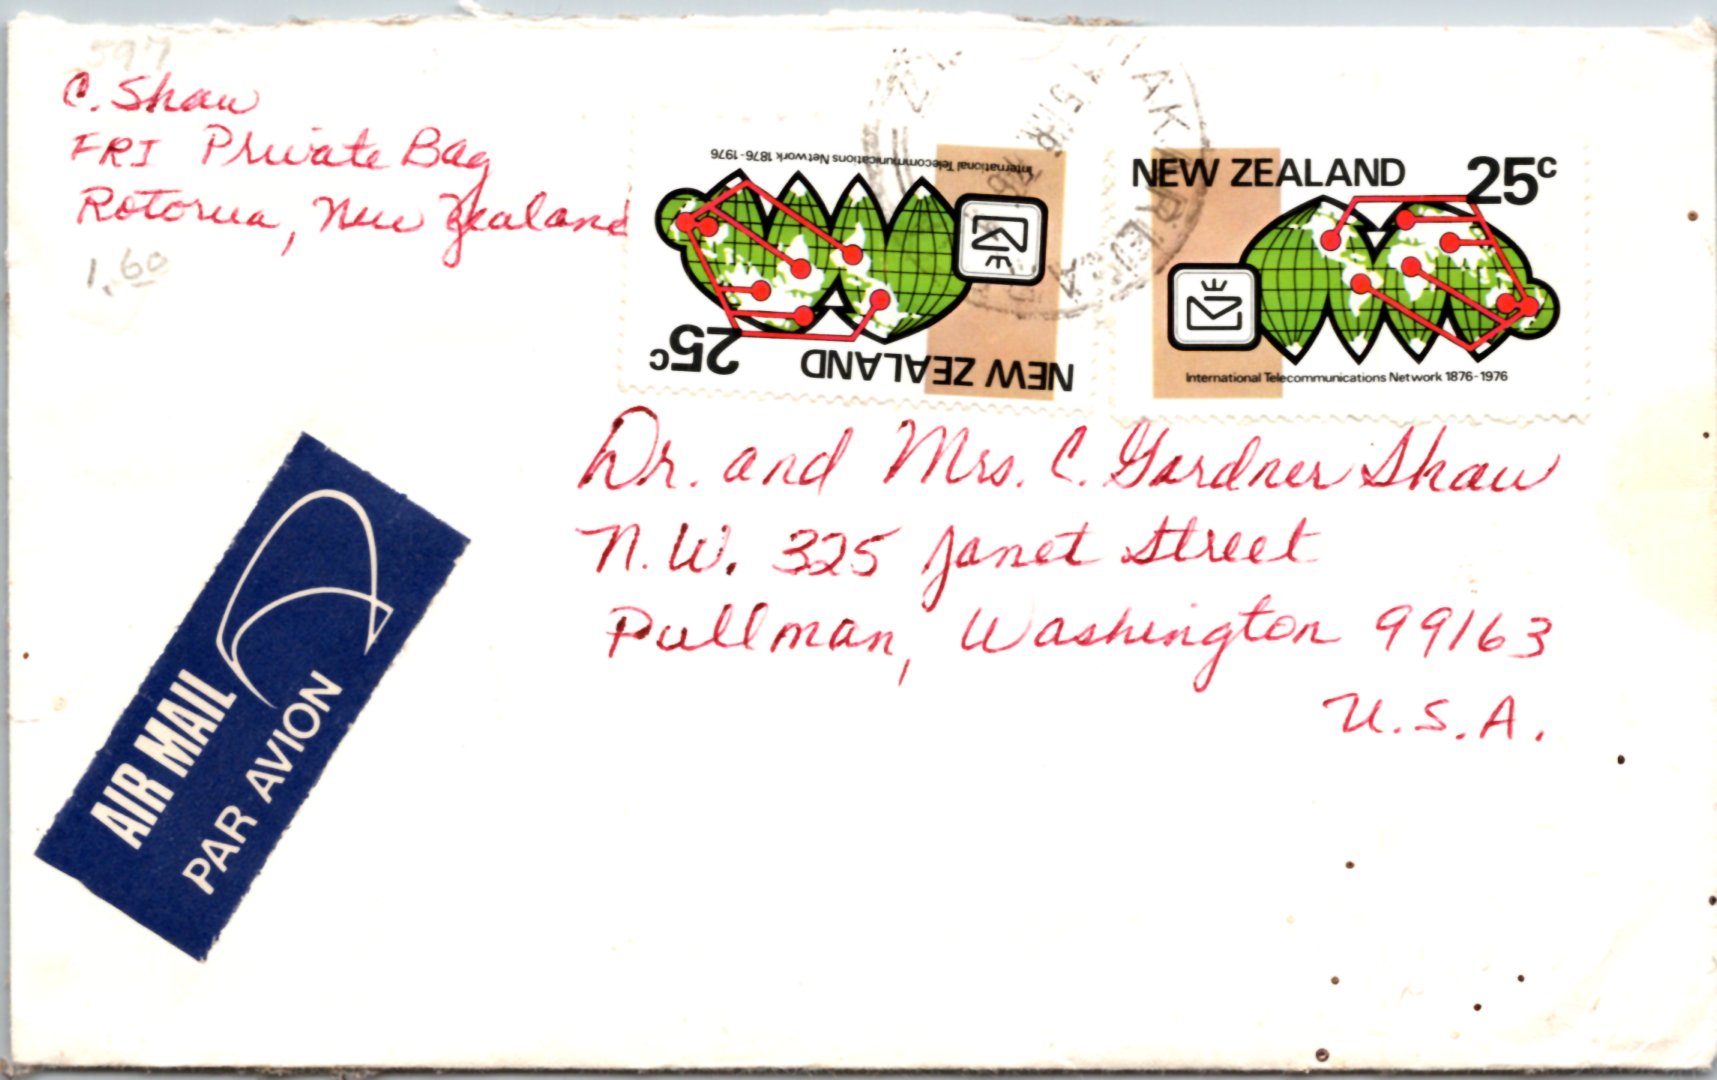 597
C. Shaw
FRI Private Bag
Rotorua, New Zealand
1.60
International Telecommunications Network 1876-1976
25c
NEW ZEALAND
NEW ZEALAND 25c
International Telecommunications Network 1876-1976
Dr. and Mrs. C. Gardner Shaw
N.W. 325 Janet Street
Pullman, Washington 99163
U.S.A.
AIR MAIL
PAR AVION